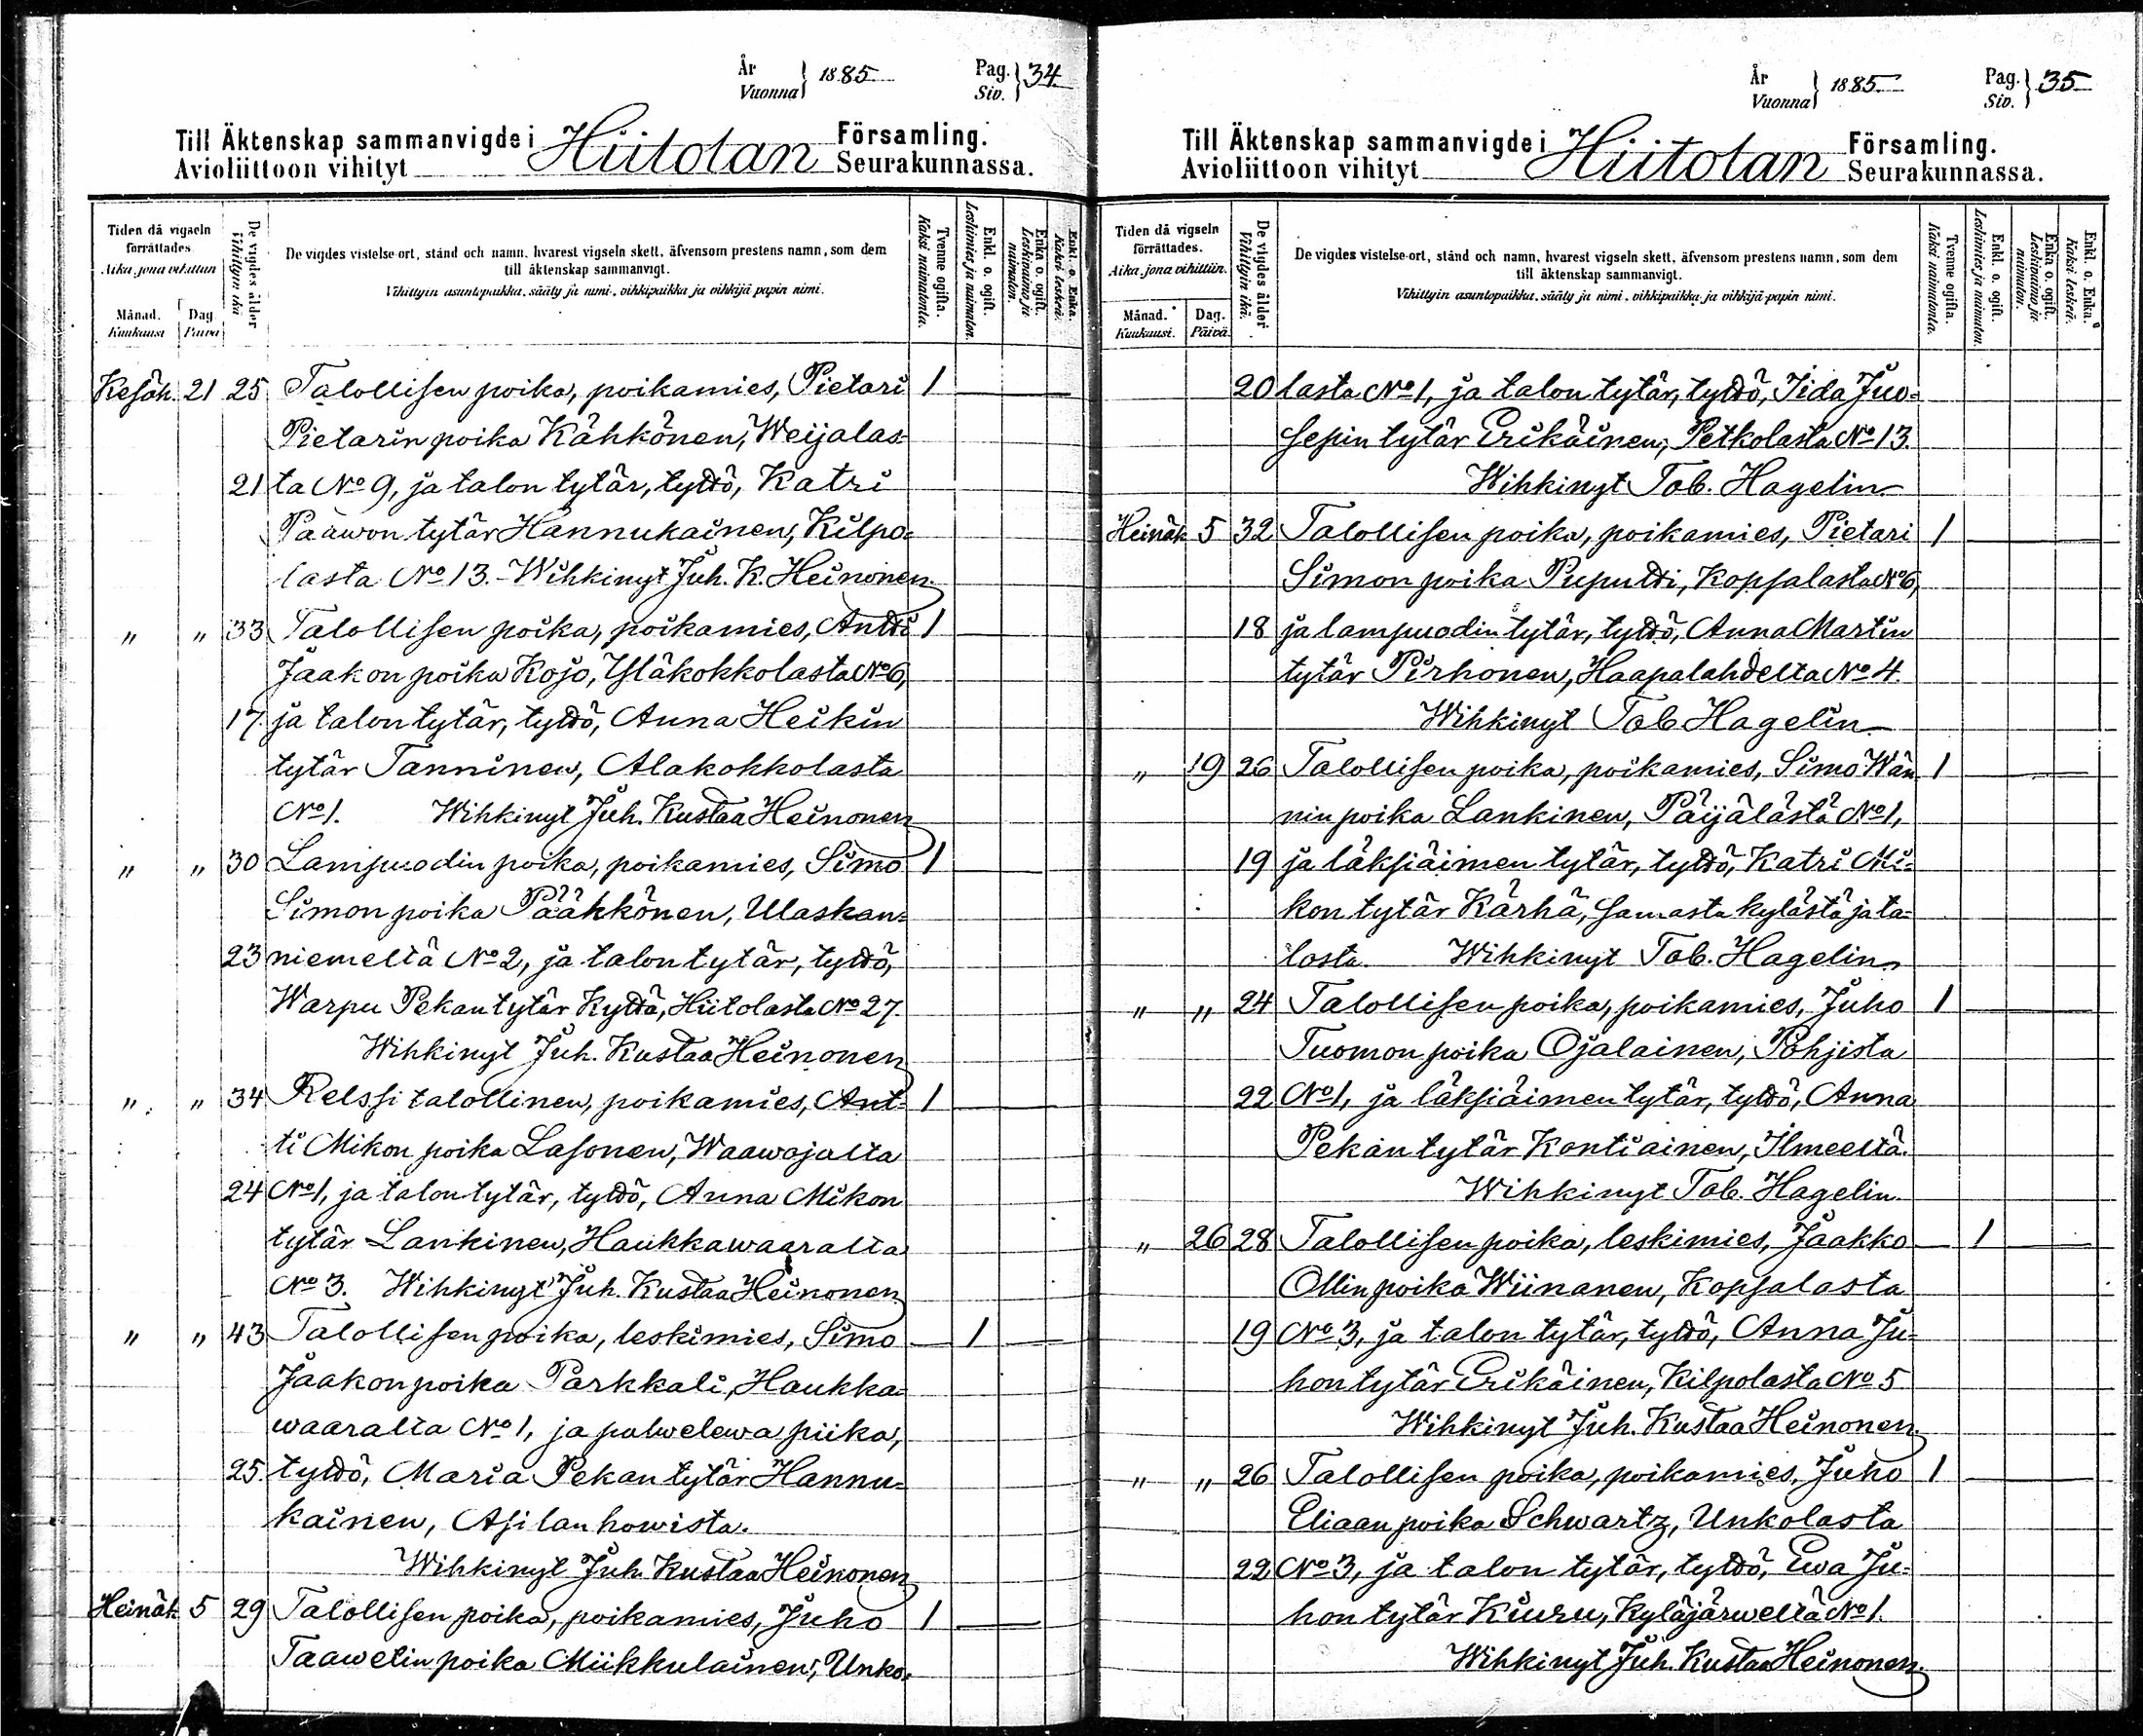 År
Vuonna } 1885
Pag.
Siv. } 34.
Till Äktenskap sammanvigde i Hiitolan Församling.
Avioliittoon vihityt Seurakunnassa.
Tiden då vigseln förrättades.
Aika, jona vihittiin.
Månad. Kuukausi.
Dag. Päivä.
De vigdes ålder
Vihittyin ikä.
De vigdes vistelse-ort, stånd och namn, hvarest vigseln skett, äfvensom prestens namn, som dem
till äktenskap sammanvigt.
Vihittyin asuntopaikka, sääty ja nimi, vihkipaikka ja vihkijä-papin nimi.
Tvenne ogifta.
Kaksi naimatonta.
Enkl. o. ogift.
Leskimies ja naimaton.
Enka o. ogift.
Leskivaimo ja naimaton.
Enkl. o. Enka.
Kaksi leskeä.
Kesäk. 21 25 Talollisen poika, poikamies, Pietari 1
Pietarin poika Kähkönen, Weijalas-
21 ta No 9, ja talon tytär, tyttö, Katri
Paawon tytär Hannukainen, Kilpo-
lasta No 13. - Wihkinyt Juh. K. Heinonen.
" " 33 Talollisen poika, poikamies, Antti 1
Jaakon poika Kojo, Yläkokkolasta No 6,
17. ja talon tytär, tyttö, Anna Heikin
tytär Tanninen, Alakokkolasta
No 1. Wihkinyt Juh. Kustaa Heinonen
" " 30 Lampuodin poika, poikamies, Simo 1
Simon poika Pääkkönen, Ulaskan-
23 niemeltä No 2, ja talon tytär, tyttö,
Warpu Pekan tytär Kyttä, Hiitolasta No 27.
Wihkinyt Juh. Kustaa Heinonen
" " 34 Relssi talollinen, poikamies, Ant- 1
ti Mikon poika Lasonen, Waawajalta
24 No 1, ja talon tytär, tyttö, Anna Mikon
tytär Lankinen, Haukkawaaralta
No 3. Wihkinyt Juh. Kustaa Heinonen.
" " 43 Talollisen poika, leskimies, Simo 1
Jaakon poika Parkkali, Haukka-
waaralta No 1, ja palwelewa piika,
25. tyttö, Maria Pekan tytär Hannu-
kainen, Asilanhowista.
Wihkinyt Juh. Kustaa Heinonen
Heinäk. 5 29 Talollisen poika, poikamies, Juho 1
Taawetin poika Miikkulainen, Unko-
År
Vuonna } 1885
Pag.
Siv. } 35
Till Äktenskap sammanvigde i Hiitolan Församling.
Avioliittoon vihityt Seurakunnassa.
Tiden då vigseln förrättades.
Aika, jona vihittiin.
Månad. Kuukausi.
Dag. Päivä.
De vigdes ålder
Vihittyin ikä.
De vigdes vistelse-ort, stånd och namn, hvarest vigseln skett, äfvensom prestens namn, som dem
till äktenskap sammanvigt.
Vihittyin asuntopaikka, sääty ja nimi, vihkipaikka ja vihkijä-papin nimi.
Tvenne ogifta.
Kaksi naimatonta.
Enkl. o. ogift.
Leskimies ja naimaton.
Enka o. ogift.
Leskivaimo ja naimaton.
Enkl. o. Enka.
Kaksi leskeä.
20 lasta No 1, ja talon tytär, tyttö, Iida Juo-
sepin tytär Erikäinen, Petkolasta No 13.
Wihkinyt Tob. Hagelin
Heinäk 5 32 Talollisen poika, poikamies, Pietari 1
Simon poika Puputti, Kopsalasta No 6,
18 ja lampuodin tytär, tyttö, Anna Martin
tytär Pirhonen, Haapalahdelta No 4.
Wihkinyt Tob Hagelin
" 19 26 Talollisen poika, poikamies, Simo Wän 1
nin poika Lankinen, Päijälästä No 1,
19 ja läksiäimen tytär, tyttö, Katri Mi-
kon tytär Kärhä, samasta kylästä ja ta-
losta. Wihkinyt Tob. Hagelin
" " 24 Talollisen poika, poikamies, Juho 1
Tuomon poika Ojalainen, Pohjista
22 No 1, ja läksiäimen tytär, tyttö, Anna
Pekan tytär Kontiainen, Ilmeeltä.
Wihkinyt Tob. Hagelin.
" 26 28 Talollisen poika, leskimies, Jaakko 1
Ollin poika Wiinanen, Kopsalasta
19 No 3, ja talon tytär, tyttö, Anna Ju-
hon tytär Erikäinen, Kilpolasta No 5
Wihkinyt Juh. Kustaa Heinonen.
" " 26 Talollisen poika, poikamies, Juho 1
Eliaan poika Schwartz, Unkolasta
22 No 3, ja talon tytär, tyttö, Ewa Ju-
hon tytär Kiuru, Kyläjärweltä No 1.
Wihkinyt Juh. Kustaa Heinonen.